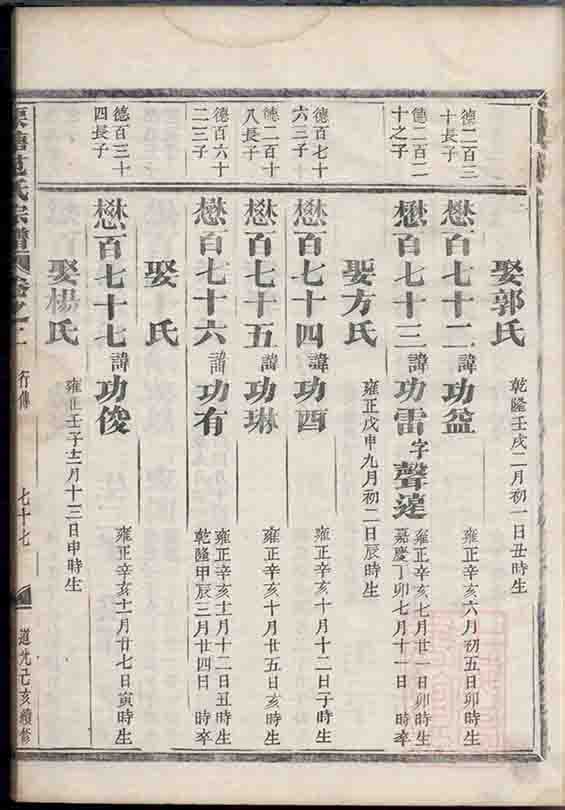 娶郭氏 乾隆壬戌二月初一日丑時生
德二百三十長子 懋百七十二 諱功盆 雍正辛亥六月初五日卯時生
德二百二十之子 懋百七十三 諱功雷 字聲遠 雍正辛亥七月廿一日卯時生 嘉慶丁卯七月十一日 時卒
娶方氏 雍正戊申九月初二日辰時生
德百七十六三子 懋百七十四 諱功酉 雍正辛亥十月十二日子時生
德二百十八長子 懋百七十五 諱功琳 雍正辛亥十月廿五日亥時生
德百六十二三子 懋百七十六 諱功有 雍正辛亥十一月十二日丑時生 乾隆甲辰三月廿四日 時卒
娶 氏
德百三十四長子 懋百七十七 諱功俊 雍正辛亥十一月廿七日寅時生
娶楊氏 雍正壬子十二月十三日申時生
氏宗譜 卷之二 行傳 七十七 道光己亥續修